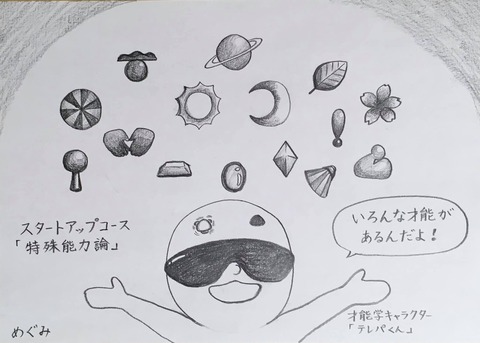 スタートアップコース
「特殊能力論」
いろんな才能が
あるんだよ!
才能学キャラクター
「テレパくん」
めぐみ